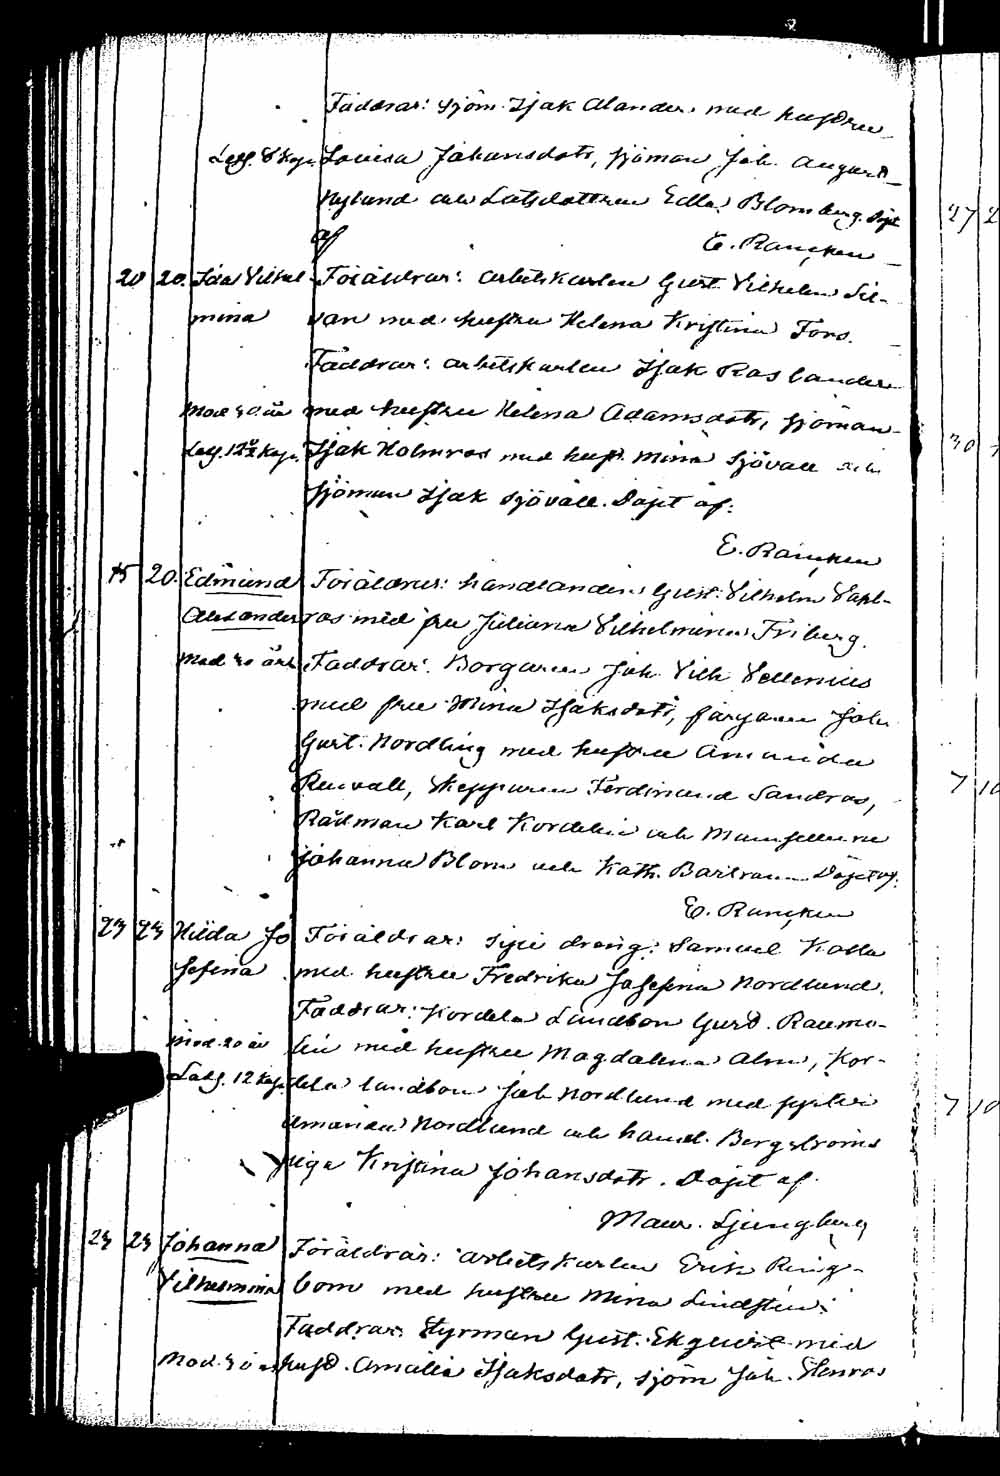 Faddrar: Sjöm. Isak Alander med hustru
Legg. 8 Kop. Lovisa Johansdotr, sjöman Joh. August
Nylund och Lotsdottren Edla Blomberg. Döpt
af E. Rancken
20 20. Ida Vilhel- Föräldrar: arbetskarlen Gust. Vilhelm Sil-
mina van med hustru Helena Kristina Fors.
Faddrar: arbetskarlen Isak Roslander
Mod. 30 år med hustru Helena Adamsdotr, sjöman
Legg. 12 Kop. Isak Holmros med hust. Mina Sjövall och
sjöman Isak Sjövall. Döpt af:
E. Rancken
15 20. Edmund Föräldrar: handlanden Gust. Vilhelm
Alexander ros med fru Juliana Vilhelmina Friberg.
Mod. 30 år Faddrar: Borgaren Joh. Vilh. Vellenius
med fru Mina Isaksdotr, färgaren Joh.
Gust. Nordling med hustru Amanda
Renvall, Skepparen Ferdinand Sandros,
Rådman Karl Kordelin och Mamsellerne
Johanna Blom och Kath. Döpt af.
E. Rancken
23 23 Hilda Jo Föräldrar: dräng: Samuel
sefina med hustru Fredrika Josefina Nordlund.
Faddrar: Kordela Landbon Gust. Raumo-
Mod. 20 år lin med hustru Magdalena Alm, Kor-
Legg. 12 Kop. dela landbon Jak. Nordlund med syster
Amanda Nordlund och handl. Bergströms
piga Kristina Johansdotr. Döpt af.
Maur. Ljungberg
23 23 Johanna Föräldrar: arbetskarlen Erik Ring-
Vilhelmina bom med hustru Mina Lindsten.
Faddrar: Styrman Gust. Ekqvist med
Mod. 30 år hust. Amalia Isaksdotr, sjöm Joh. Stenros
27 2
30
7 10
7 10